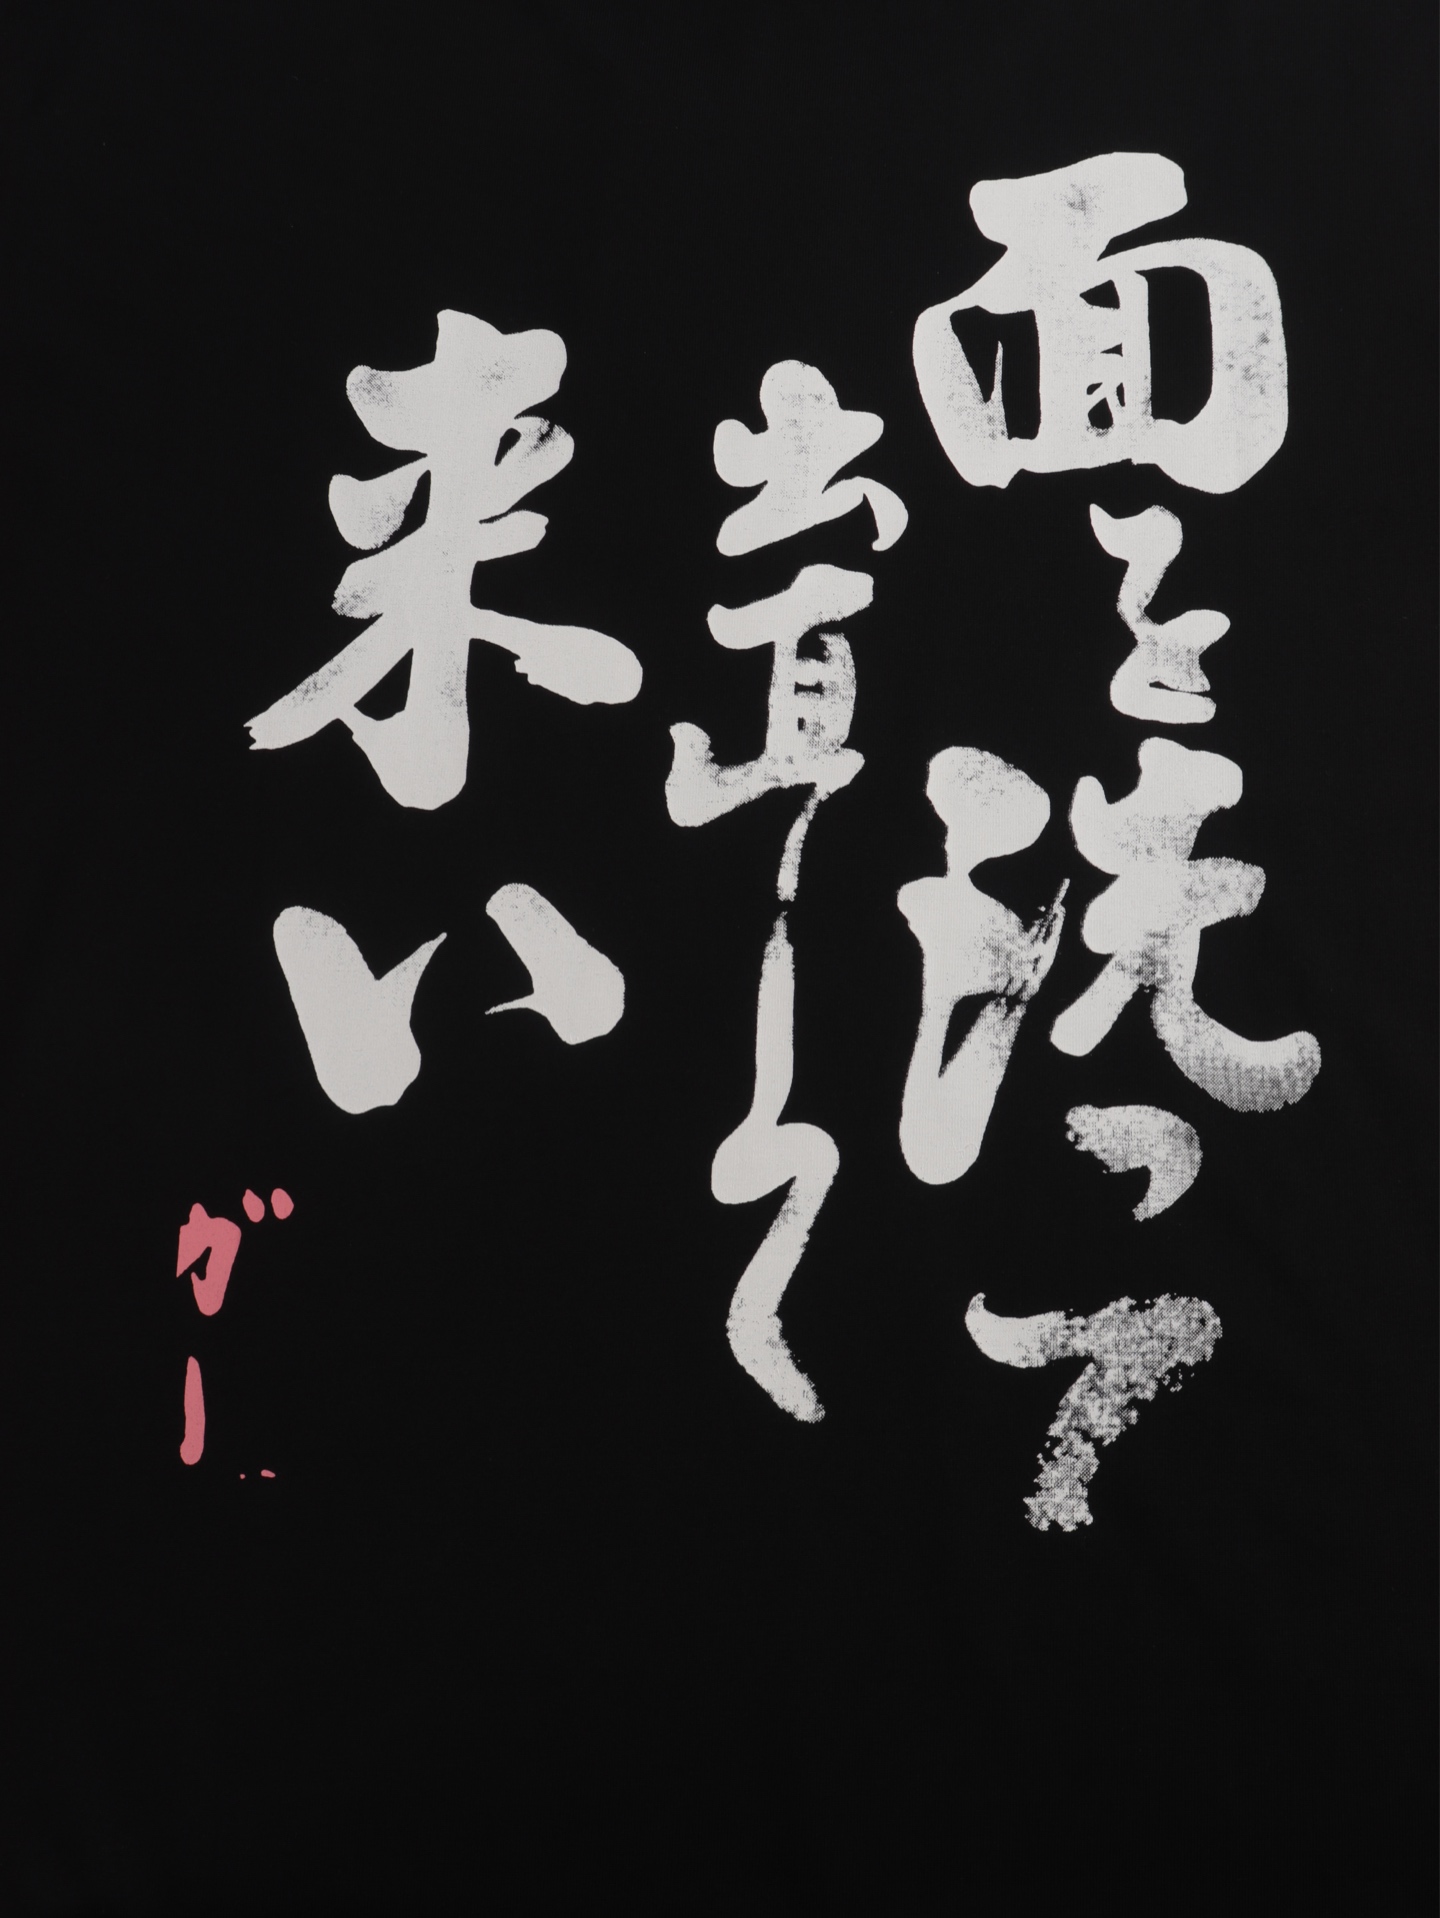 面を洗って
出直して
来い
ガー